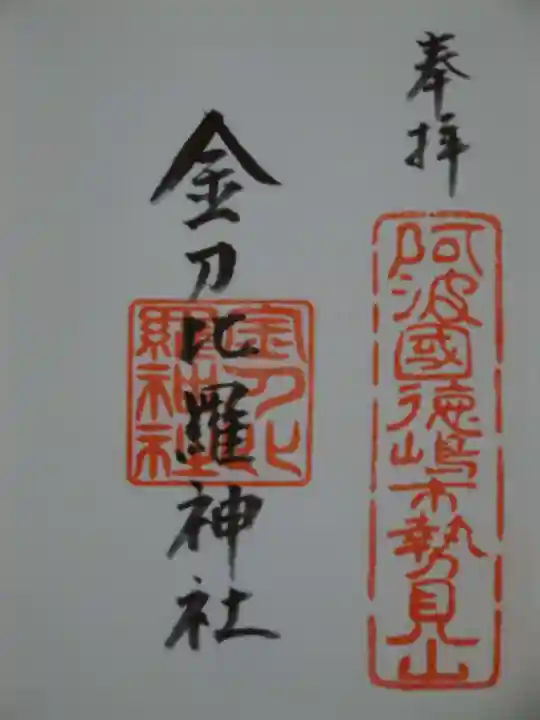 奉拝
阿波國徳嶋市勢見山
金刀比羅神社
金刀比
羅神社